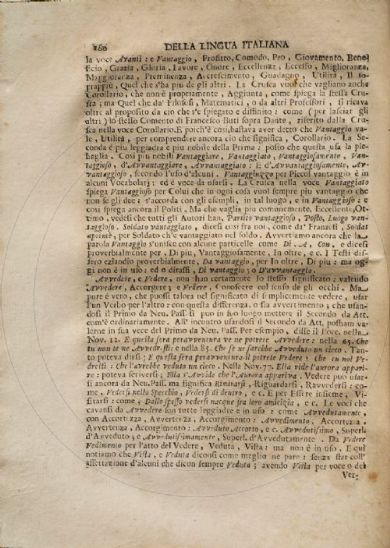 280 DELLA LINGUA ITALIANA
la voce Avanti: e Vantaggio, Profitto, Comodo, Pro, Giovamento, Bene-
ficio, Grazia, Gloria, Favore, Onore, Eccellenza, Eccesso, Miglioranza,
Maggioranza, Preminenza, Accrescimento, Guadagno, Utilità, Il so-
prappiù, Quel che s'ha più de gli altri. La Crusca vuole che vagliano anche
Corollario, che non è propriamente, Aggiunta, come spiega la stessa Cru-
sca; ma Quel che da' Filosofi, Matematici, o da altri Professori si ricava
oltre al proposito da ciò che s'è spiegato e diffinito: come (per lasciar gli
altri) lo stesso Comento di Francesco Buti sopra Dante, riferito dalla Cru-
sca nella voce Corollario. E perch'è consultava aver detto che Vantaggio va-
le, Utilità, per comprendere ancora ciò che significa, Corollario. La Se-
conda è più leggiadra e più nobile della Prima; posto che questa usa la ple-
beglia. Così più nobili Vantaggiare, Vantaggiato, Vantaggiosamente, Van-
taggioso, d'Avvantaggiare, Avvantaggiato. E d'Avvantaggiosamente, Av-
vantaggioso, secondo l'uso d'alcuni. Vantagguzzo per Piccol vantaggio è in
alcuni Vocabolarj: ed è voce da usarsi. La Crusca nella voce Vantaggiato
spiega Vantaggioso per Colui che in ogni cosa vuol sempre più vantaggio che
non se gli dee: e s'accorda con gli esempli, in tal luogo, e in Vantaggioso: e così
spiega ancora il Politi. Ma che vaglia più comunemente, Eccellente, Ot-
timo, vedesi che tutti gli Autori han, Partito vantaggioso, Posto, Luogo van-
taggioso. Soldato vantaggiato, dicesi così fra noi, come da' Franzesi, Soldat
apointé, per Soldato ch'è vantaggiato nel soldo. Avvertiamo ancora che la
parola Vantaggio s'unisce con alcune particelle come Di, A, Con, e dicesi
proverbialmente per, Di più, Vantaggiosamente, In oltre, e c. I Testi dis-
sero eziandio proverbialmente, Da vantaggio, per In oltre, Di più: ma og-
gi non è in uso: ed o dirassi, Di vantaggio, o D'avvantaggio.
Avvedere, e Vedere, non han certamente lo stesso significato: valendo
Avvedere, Accorgere; e Vedere, Conoscere col senso de gli occhi. Ma
pure è vero, che puossi talora nel significato di semplicemente vedere, usar
l'un Verbo per l'altro: con questa differenza, o sia avvertimento; che usan-
dosi il Primo da Neu. Pass. si può in suo luogo mettere il Secondo da Att.
com'è ordinariamente. All'incontro usandosi il Secondo da Att. possiam va-
lerne in sua vece del Primo da Neu. Pass. Per esempio, disse il Bocc. nella
Nov. 12. E questa sera peravventura ve ne potrete Avvedere: nella 65. Che
tu non te ne Avvedessi: e nella 85. Che se ne sarebbe Avveduto un cieco. Tan-
to poteva dirsi: E questa sera peravventura il potrete Vedere: Che tu nol Ve-
dessi: Che l'avrebbe veduto un cieco. Nella Nov. 17. Ella vide l'aurora appari-
re: poteva scriversi; Ella s'avvide che l'Aurora appariva. Vedere può usar-
si ancora da Neu. Pass. ma significa Rimirarsi, Riguardarsi, Ravvedersi; co-
me, Vedersi nello Specchio, Vedersi di dentro, e c. E per Essere insieme, Vi-
sitarsi: come, Dallo spesso vedersi nacque fra loro amicizia, e c. Le voci che
cavansi da Avvedere son tutte leggiadre e in uso: come Avvedutamente,
con Accortezza, Avvertenza, Accorgimento: Avvedimento, Accortezza,
Avvertenza, Accorgimento: Avveduto Accorto, e c. Avvedutissimo, Superl.
d'Avveduto; e Avvedutissimamente, Superl. d'Avvedutamente. Da Vedere
Vedimento per l'atto del Vedere, Veduta, Vista: ma non è in uso. E qui
notiamo che Vista, e Veduta diconsi come meglio ne pare: senza star coll'
affettazione d'alcuni che dicon sempre Veduta; avendo Vista per voce o del
Ver-